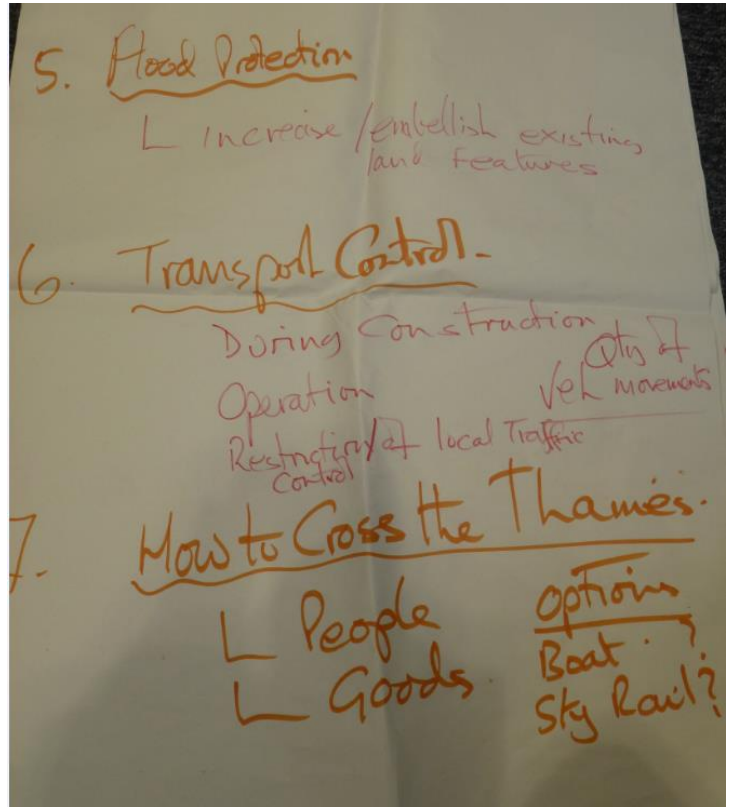 5. Flood Protection
L increase/embellish existing
land features
6. Transport Control-
During Construction
Qty of
Operation
Veh movements
Restriction/of local Traffic
Control
7. How to Cross the Thames.
L People
options
L Goods
Boat?
Sky Rail?